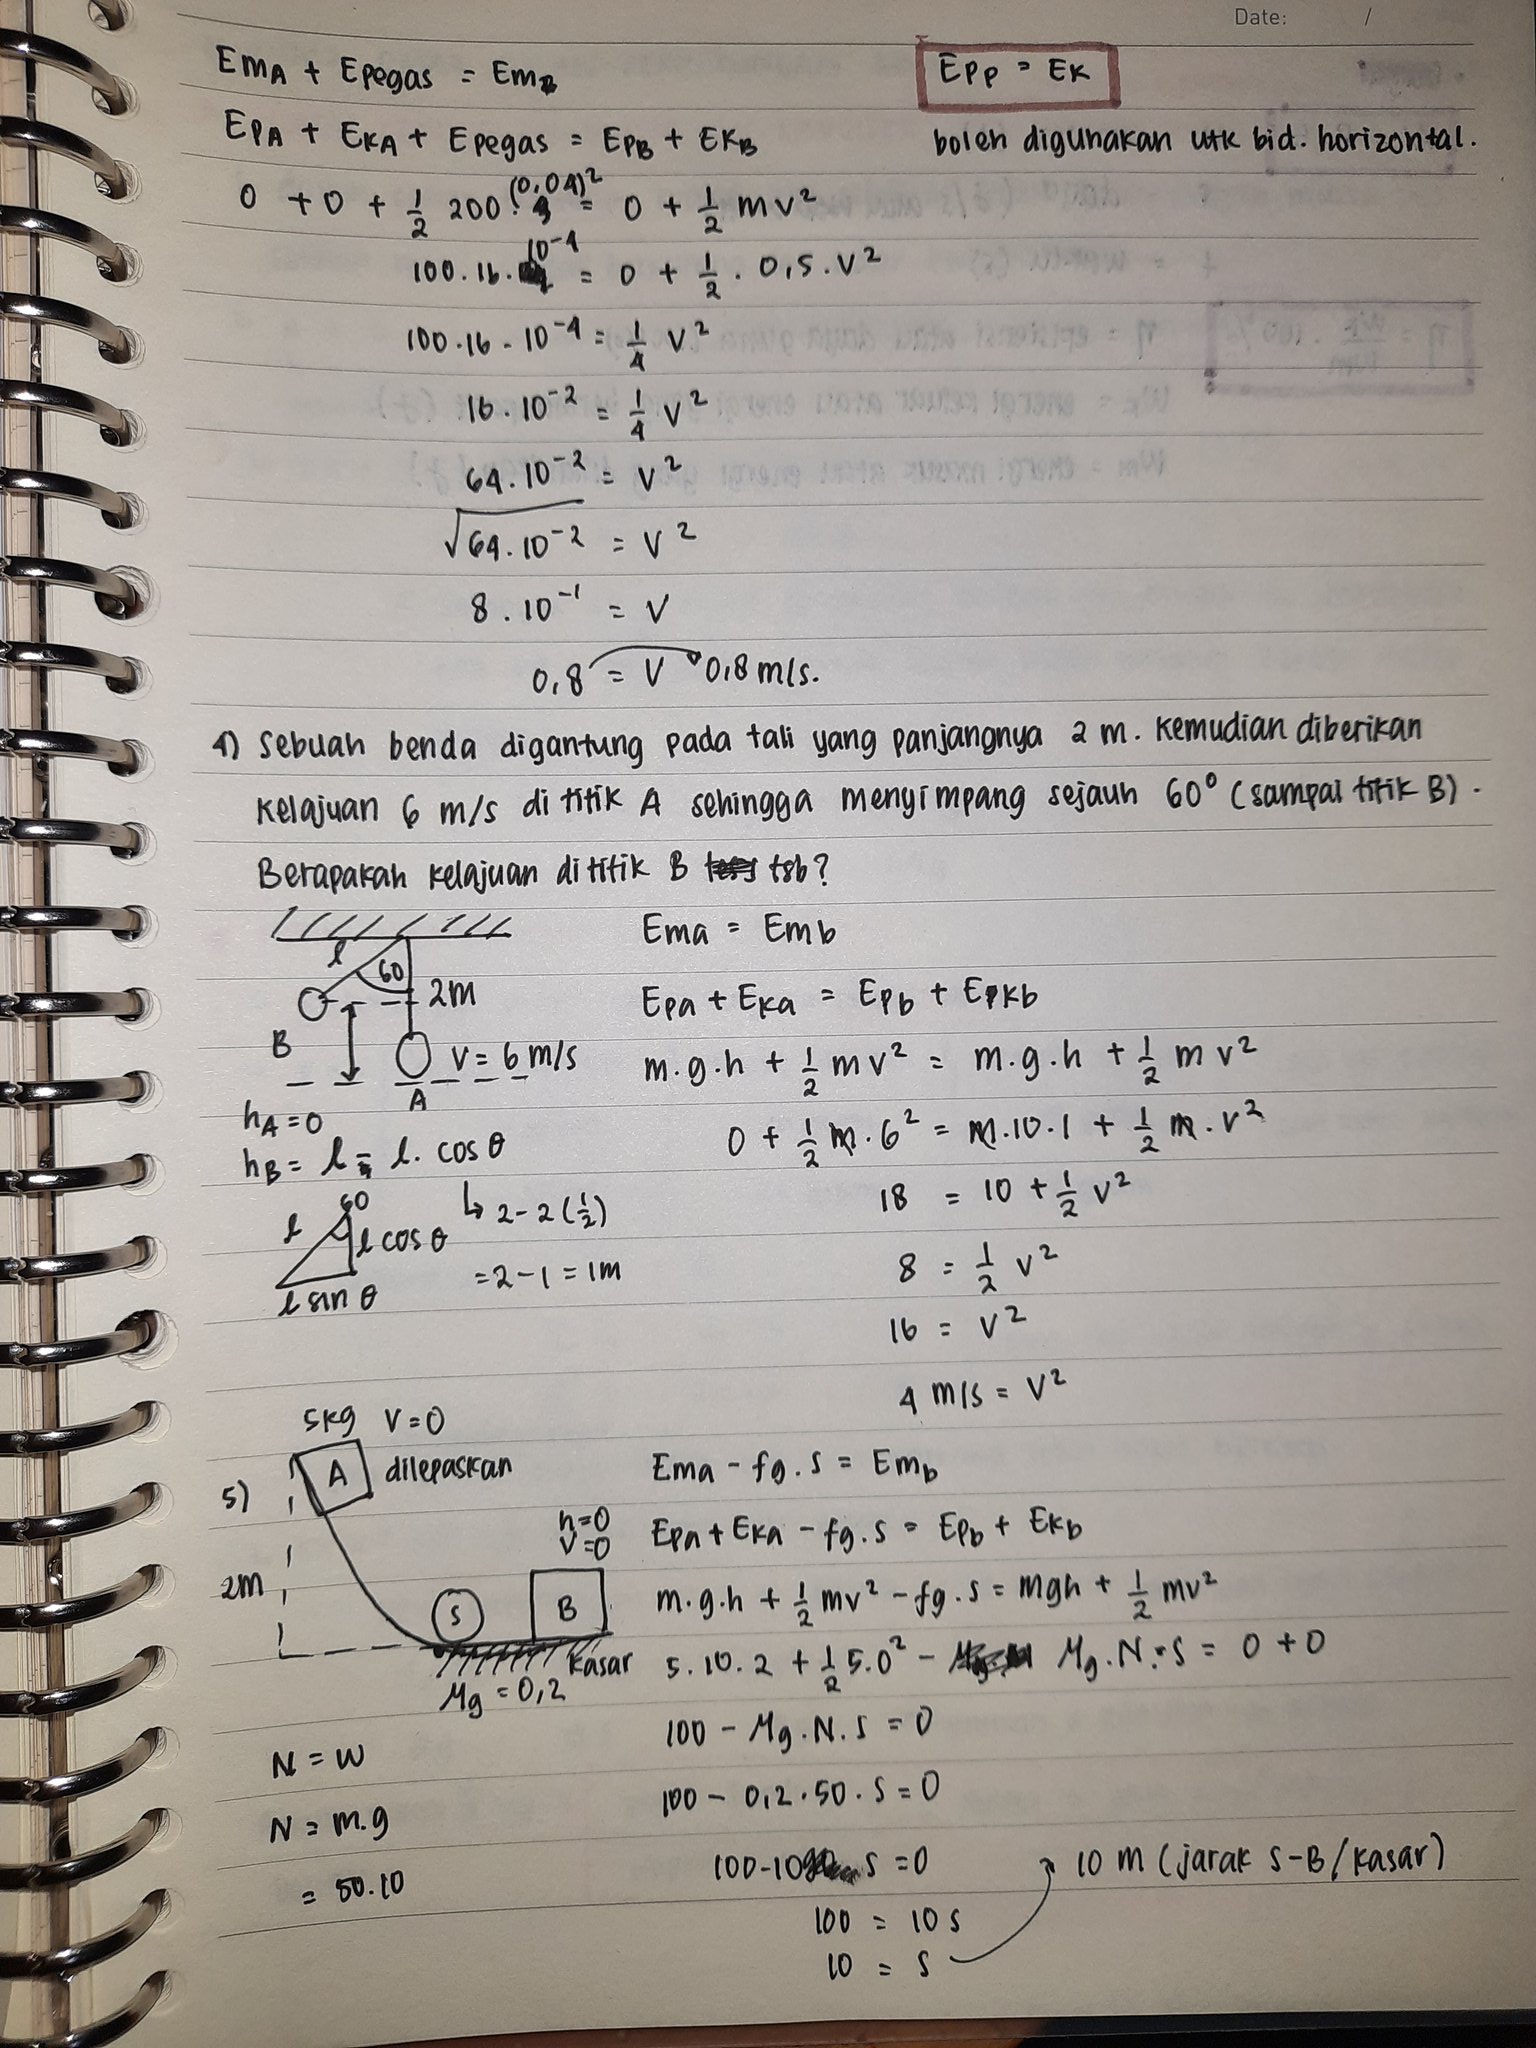 Date: /
EmA + Epegas = EmB
Epp = Ek
EpA + EkA + Epegas = EpB + EkB
boleh digunakan utk bid. horizontal.
0 + 0 + 1/2 200 . (0,04)² = 0 + 1/2 mv²
100.16.10⁻⁴ = 0 + 1/2 . 0,5.v²
100.16.10⁻⁴ = 1/4 v²
16.10⁻² = 1/4 v²
64.10⁻² = v²
√64.10⁻² = v²
8.10⁻¹ = v
0,8 = v 0,8 m/s.
4) Sebuah benda digantung pada tali yang panjangnya 2 m. Kemudian diberikan
kelajuan 6 m/s di titik A sehingga menyimpang sejauh 60° (sampai titik B).
Berapakah kelajuan di titik B tsb?
l 60 2m
B
V = 6 m/s
A
hA = 0
hB = l - l. cos θ
↳ 2-2(1/2)
= 2-1 = 1m
60
l
l cos θ
l sin θ
Ema = Emb
Epa + Eka = Epb + Ekb
m.g.h + 1/2 mv² = m.g.h + 1/2 mv²
0 + 1/2 m.6² = m.10.1 + 1/2 m.v²
18 = 10 + 1/2 v²
8 = 1/2 v²
16 = v²
4 m/s = v²
5)
5kg V=0
A dilepaskan
2m
h=0
V=0
S
B
kasar
μg = 0,2
N = w
N = m.g
= 50.10
Ema - fg.s = Emb
Epa + Eka - fg.s = Epb + Ekb
m.g.h + 1/2 mv² - fg.s = mgh + 1/2 mv²
5.10.2 + 1/2 5.0² - μg.N.s = 0 + 0
100 - μg.N.s = 0
100 - 0,2.50.s = 0
100-10 s = 0
100 = 10 s
10 = s
10 m (jarak S-B/kasar)